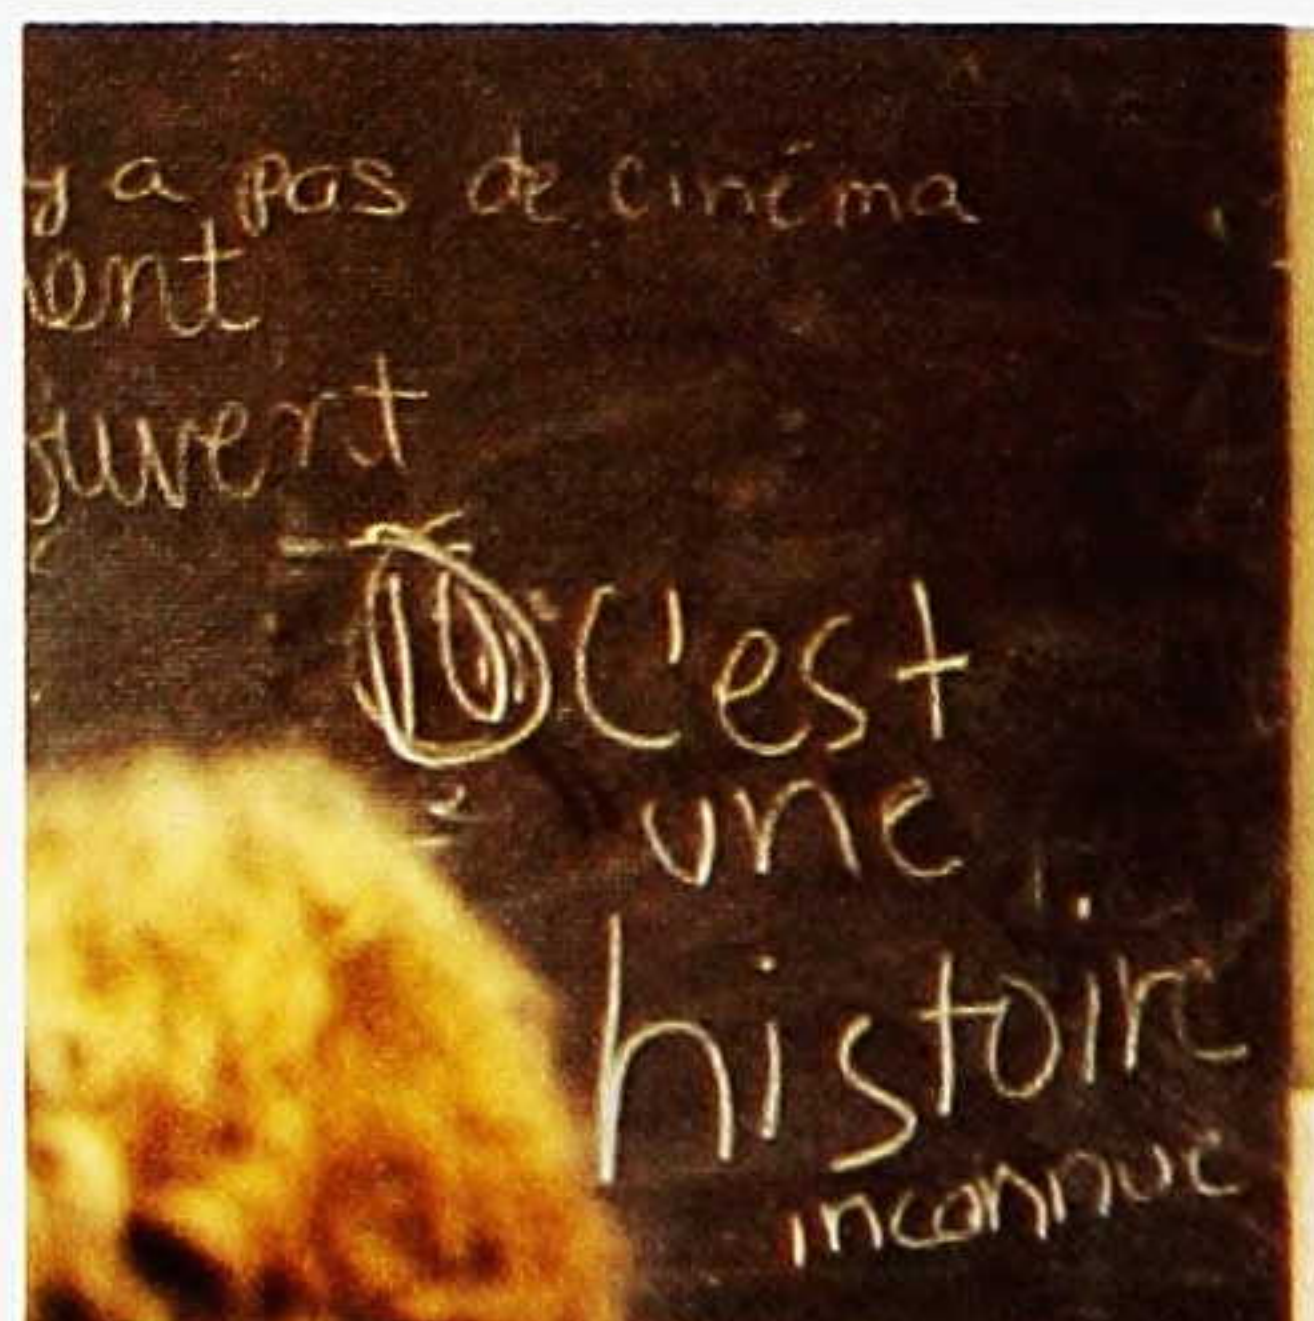 y a pas de cinéma
ent
ouvent
C'est
une
histoire
inconnue